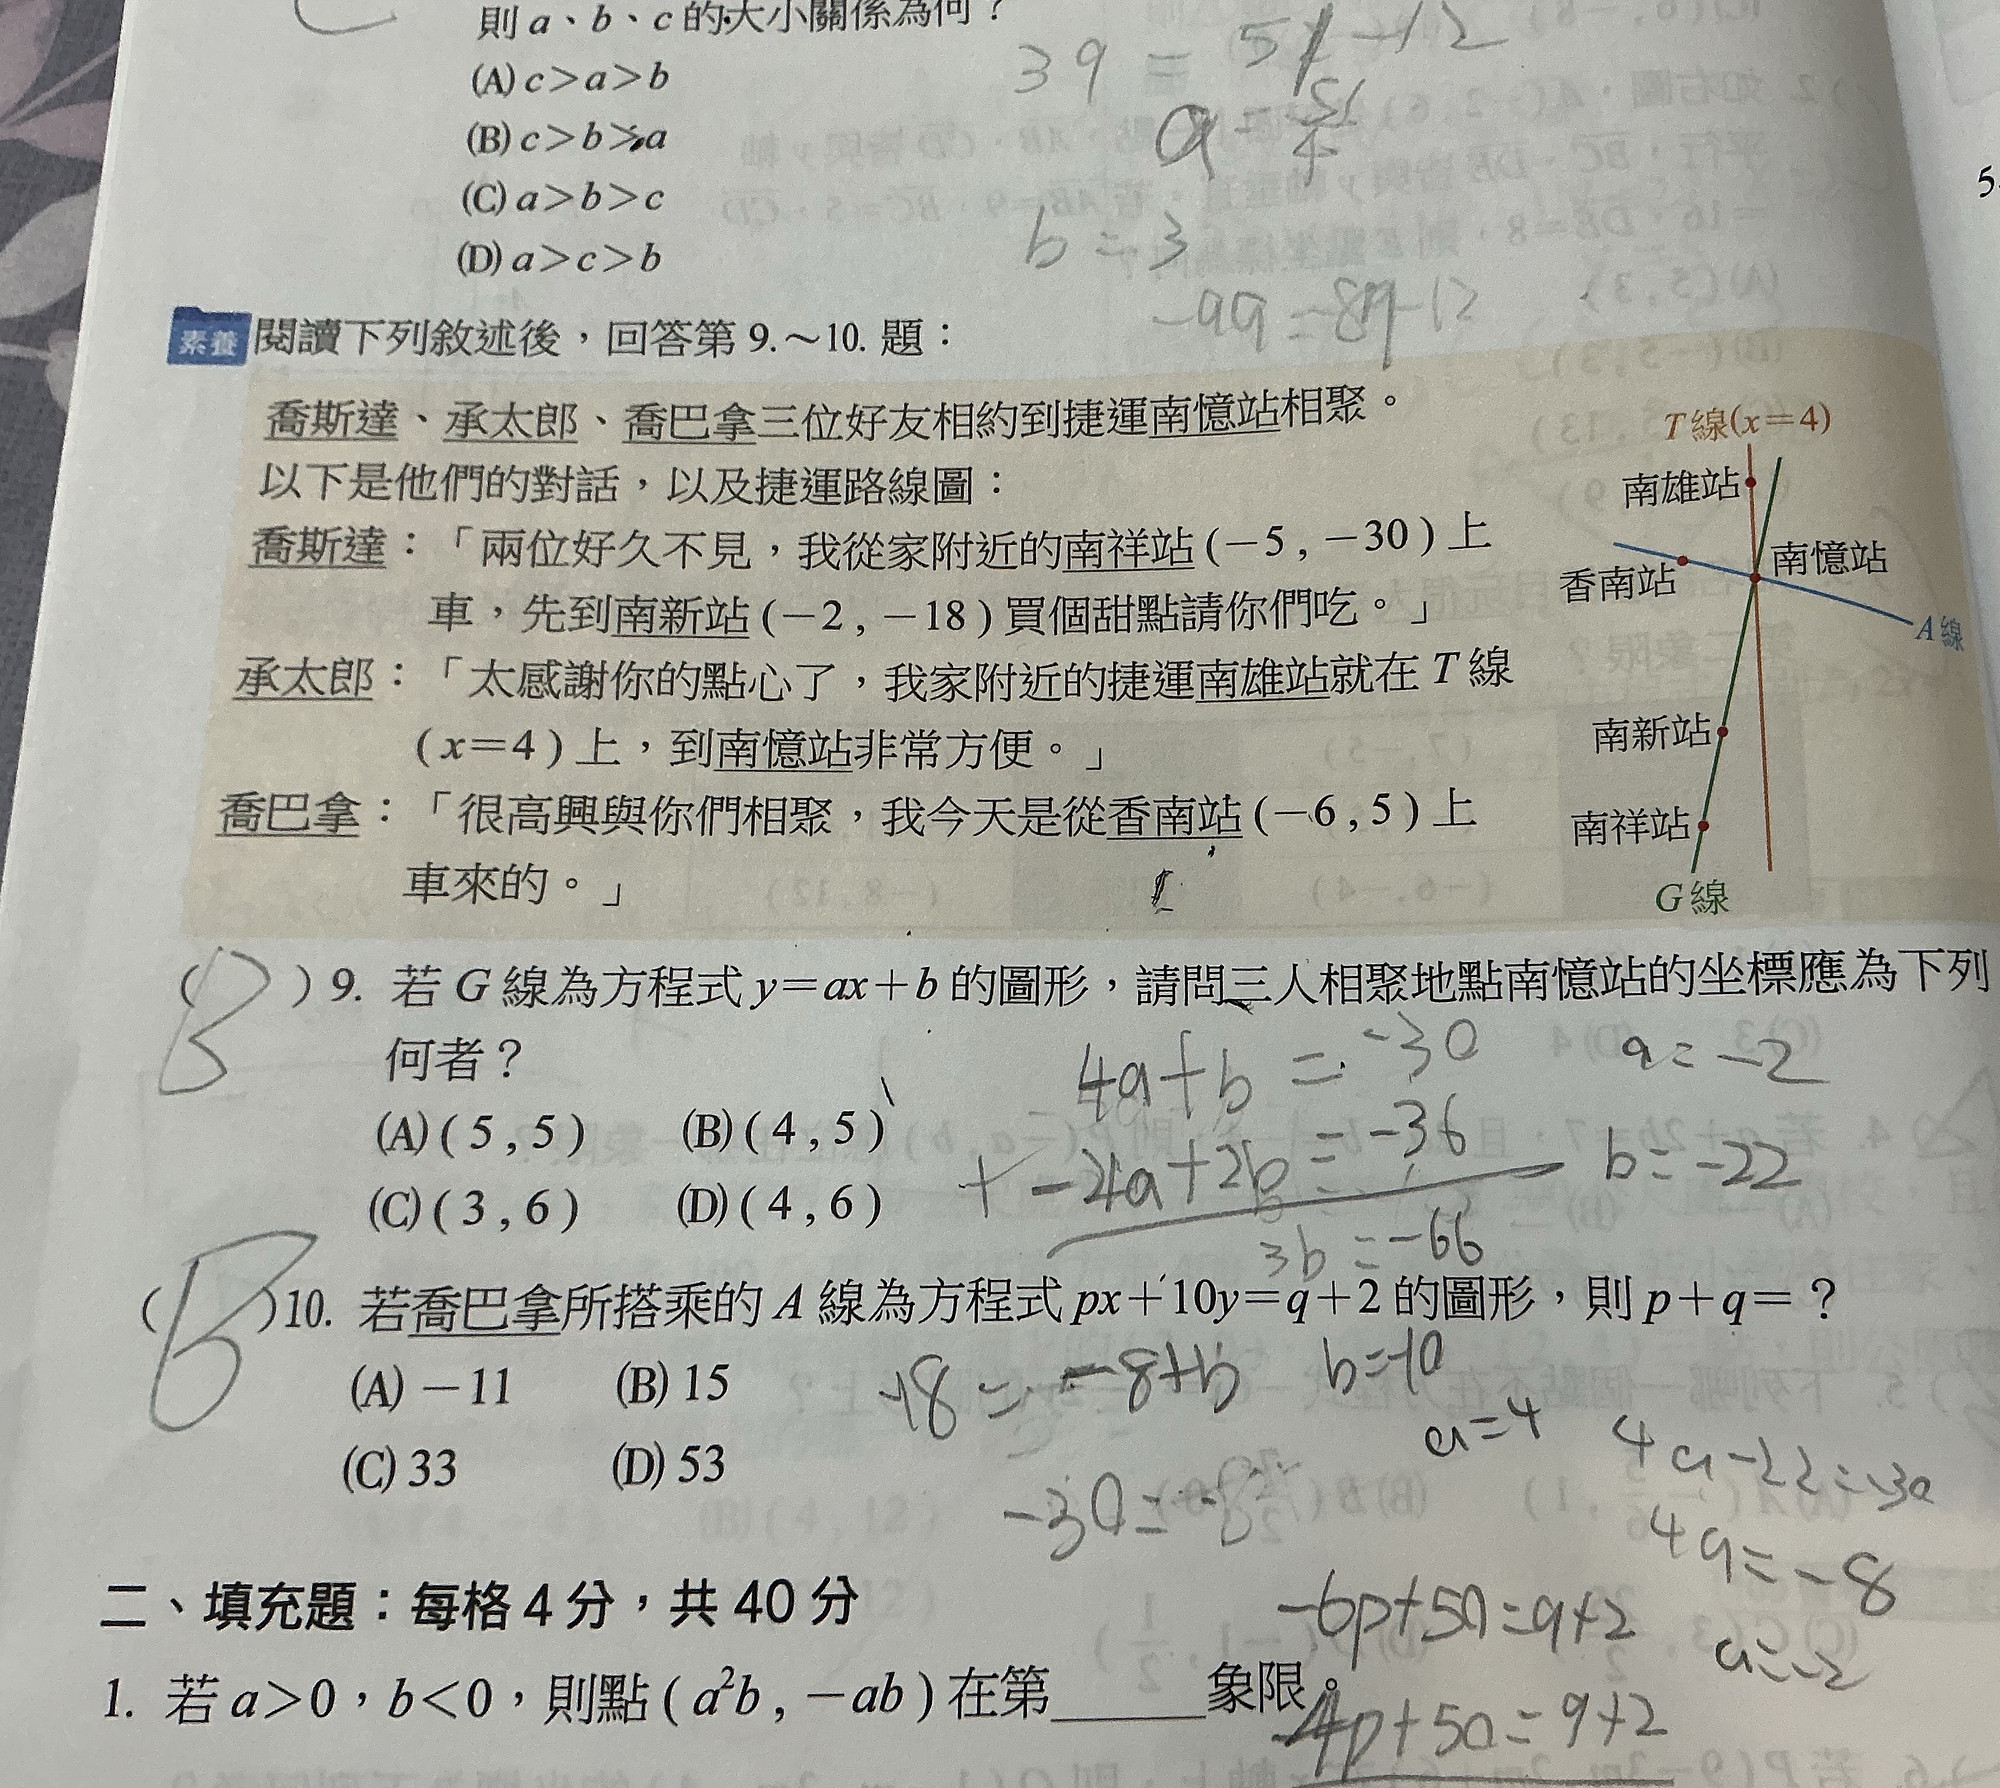 則 a、b、c 的大小關係為何？
(A) c>a>b
(B) c>b>a
(C) a>b>c
(D) a>c>b
39 = 5y-12
b=3
素養 閱讀下列敘述後，回答第 9.～10. 題：
喬斯達、承太郎、喬巴拿三位好友相約到捷運南憶站相聚。
以下是他們的對話，以及捷運路線圖：
喬斯達：「兩位好久不見，我從家附近的南祥站(−5,−30)上
車，先到南新站(−2,−18)買個甜點請你們吃。」
承太郎：「太感謝你的點心了，我家附近的捷運南雄站就在 T 線
(x=4)上，到南憶站非常方便。」
喬巴拿：「很高興與你們相聚，我今天是從香南站(−6,5)上
車來的。」
T 線(x=4)
南雄站
南憶站
香南站
A 線
南新站
南祥站
G 線
( B ) 9. 若 G 線為方程式 y=ax+b 的圖形，請問三人相聚地點南憶站的坐標應為下列
何者？
(A) (5,5) (B) (4,5)
(C) (3,6) (D) (4,6)
4a+b=-30
a=-2
+ -4a+2b=-36
b=-22
3b=-66
( B ) 10. 若喬巴拿所搭乘的 A 線為方程式 px+10y=q+2 的圖形，則 p+q=？
(A) −11 (B) 15
(C) 33 (D) 53
-18=-8+b
b=-10
a=4
4a-22=-30
4a=-8
a=-2
-6p+50=q+2
4p+50=q+2
二、填充題：每格 4 分，共 40 分
1. 若 a>0，b<0，則點(a²b,−ab)在第______象限。